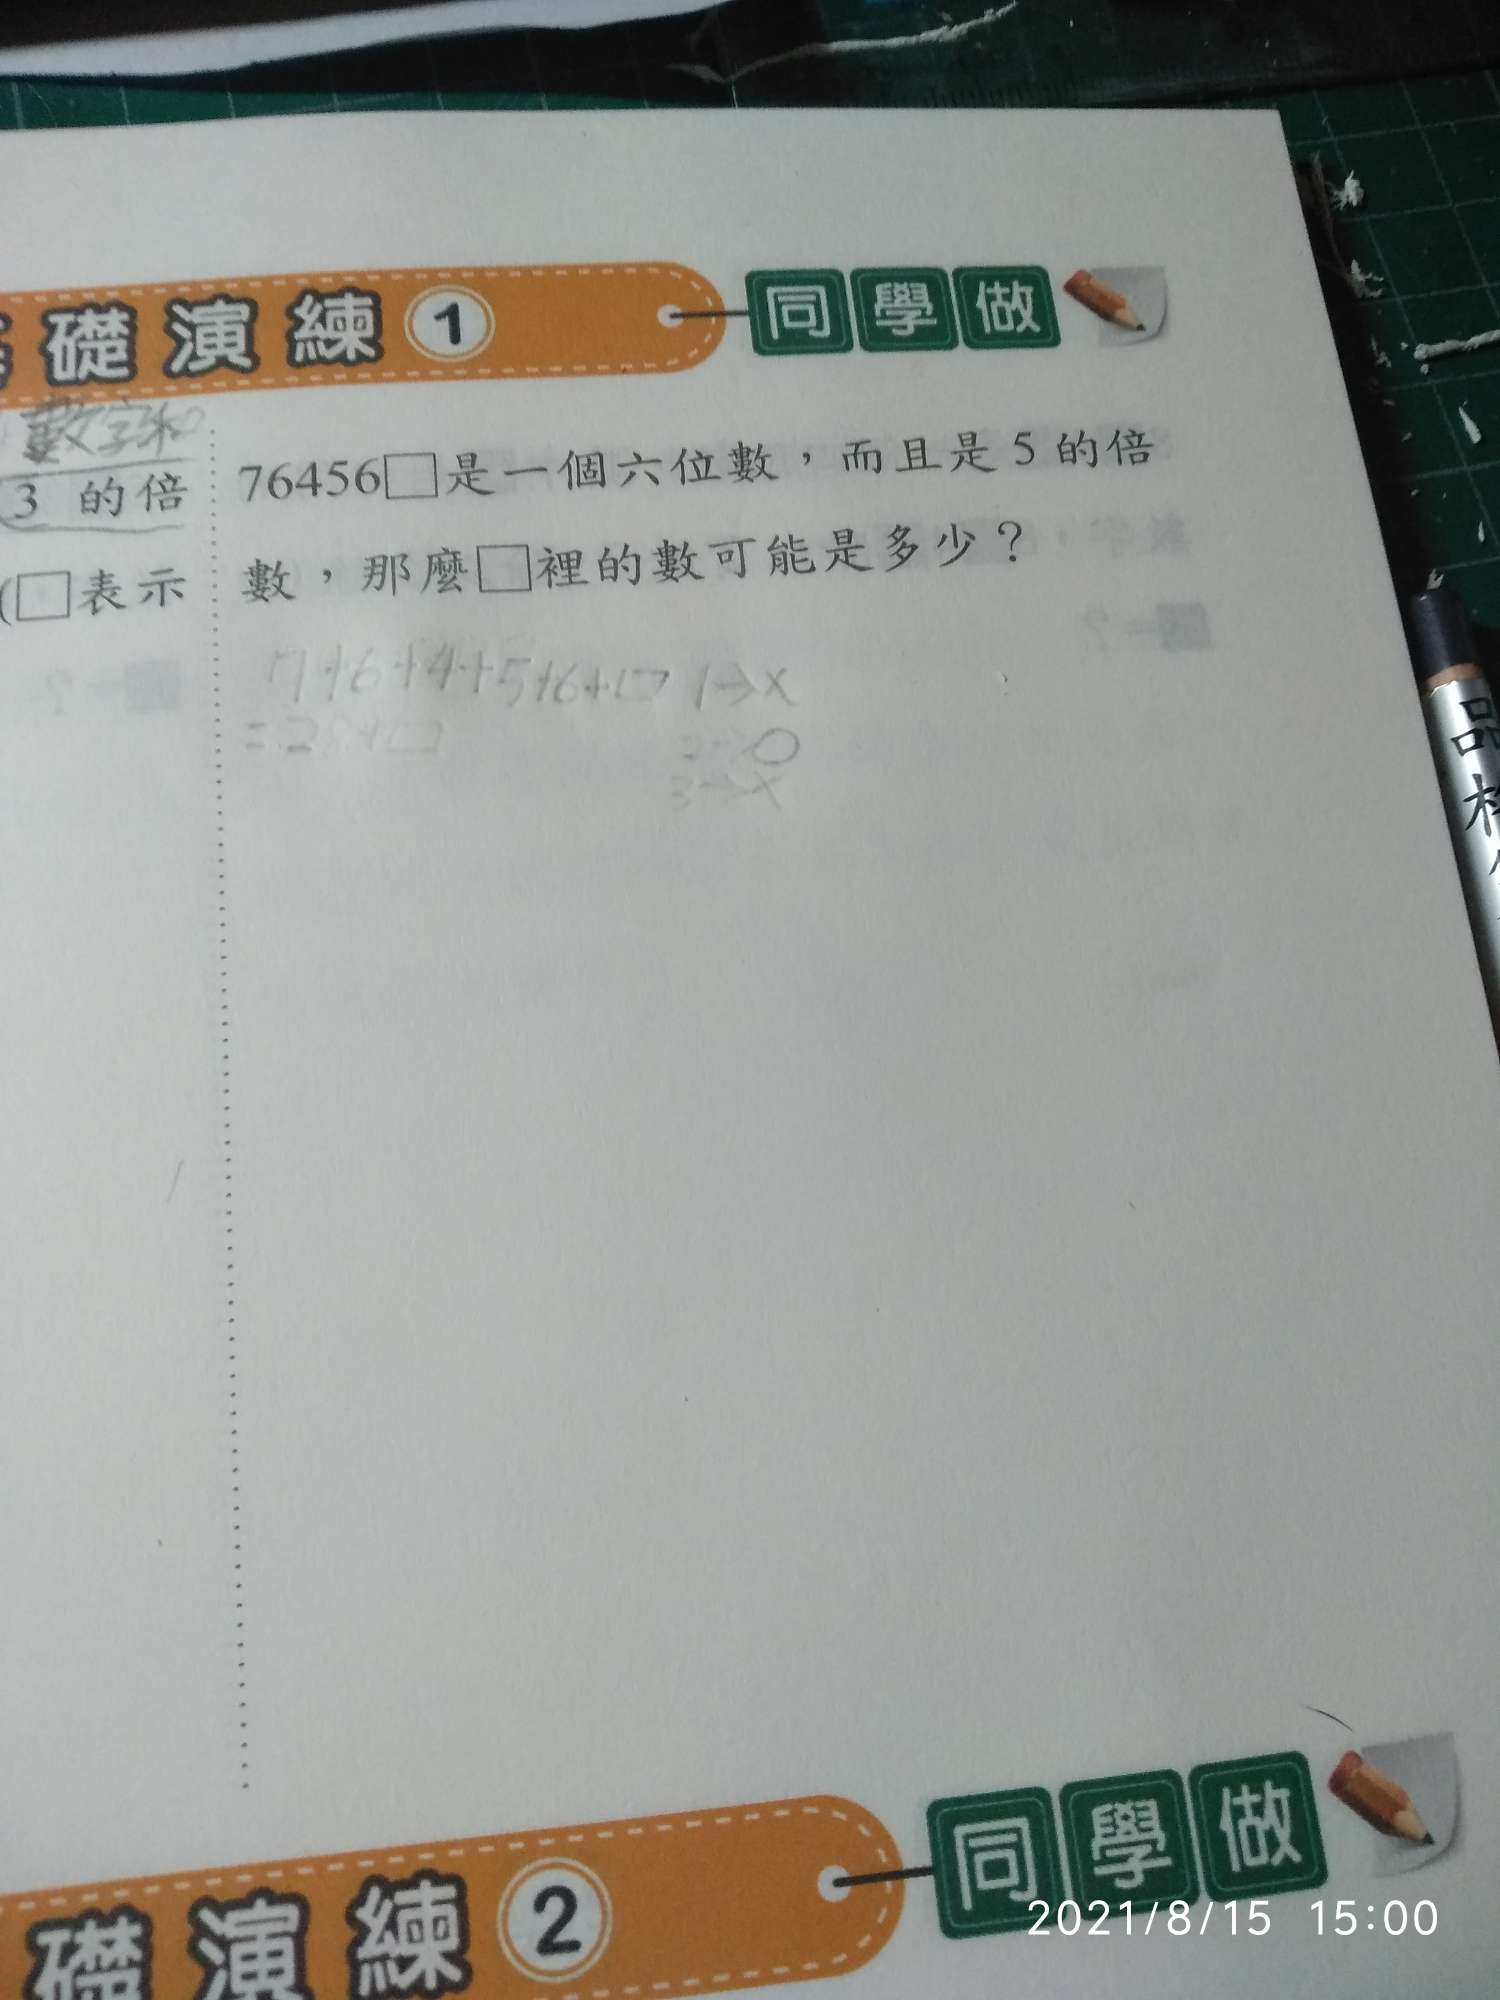 礎演練1 同學做
數字和
3 的倍
(□表示
76456□是一個六位數，而且是 5 的倍
數，那麼□裡的數可能是多少？
7+6+4+5+6+□ 1→×
=28+□ 2→○
3→×
品
礎演練2 同學做
2021/8/15 15:00